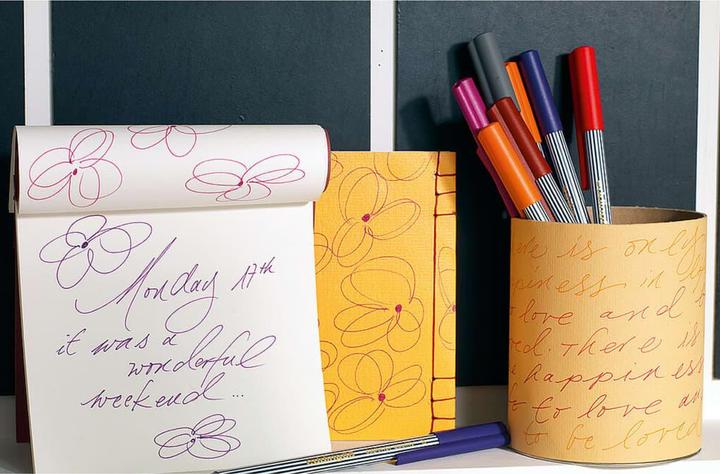 Monday 17th
it was a
wonderful
weekend...
is only
piness in
love and
There is
happiness
to love an
to be loved